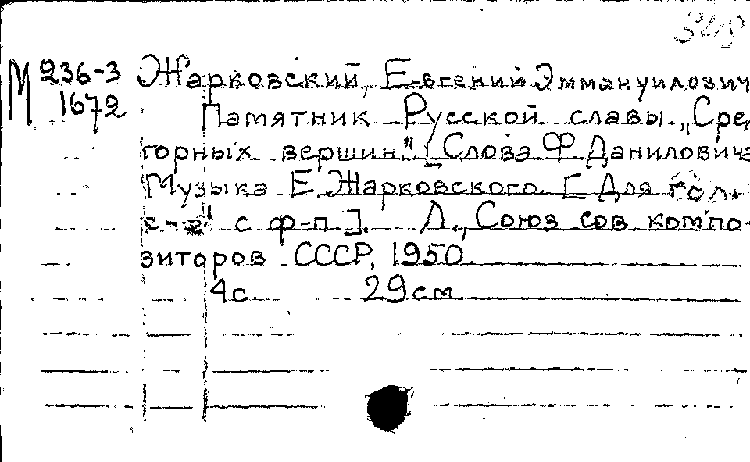 М 236-3 Жарковский, Евгений Эммануилович
1672 Памятник Русской славы. „Сре
горных вершин." [ Слова Ф. Даниловича
Музыка Е. Жарковского. [ Для гол.
с ф-п ]. Л., Союз сов. компо-
зиторов СССР, 1950
4с 29см